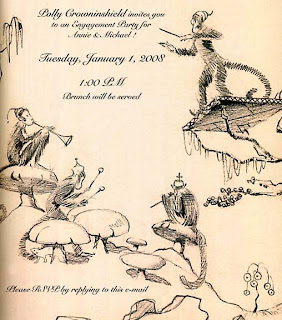 Polly Crowninshield invites you
to an Engagement Party for
Annie & Michael !
Tuesday, January 1, 2008
1:00 P.M
Brunch will be served
Please RSVP by replying to this e-mail